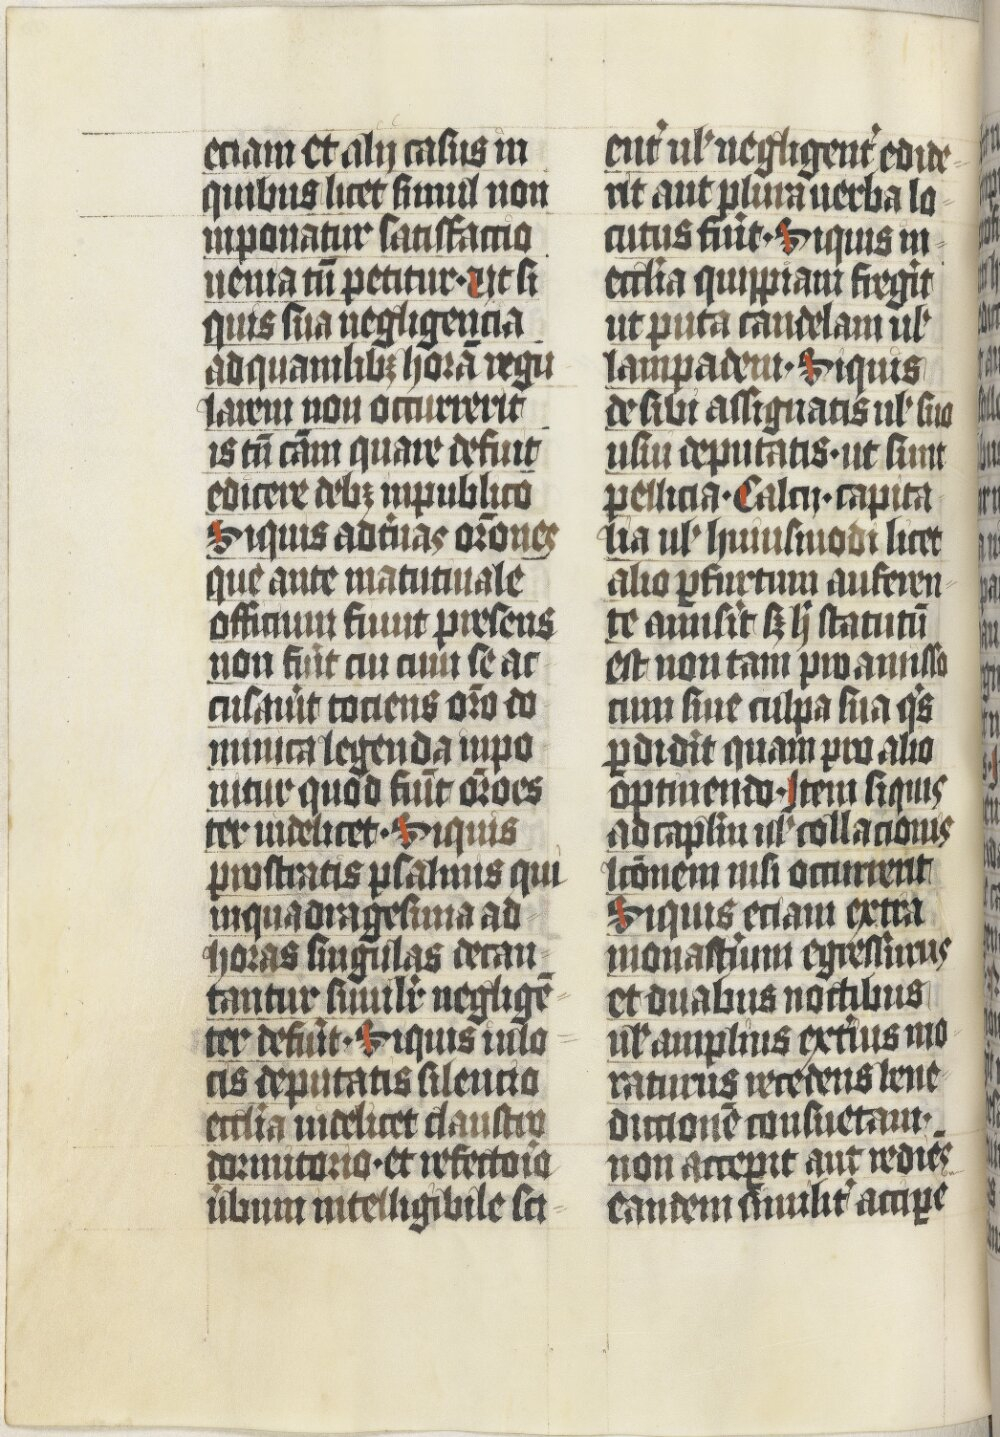 eciam et alij casus in
quibus licet simul non
inponatur satisfactio
uenia tn̄ petitur · Ut si
quis sua negligencia
ad quamlibꝫ horā regu
larem non occurrerit
is tn̄ cām quare defuit
edicere debꝫ inpublico
Siquis ad t͛nas or̄ones
que ante matutinale
officium fiunt presens
non fu͛it cui cum se ac
cusau͛it tociens or̄o do
minica legenda inpo
nitur quod fiu͛nt or̄oes
ter uidelicet · Siquis
prostratis psalmis qui
inquadragesima ad
horas singulas decan
tantur simili͛r negligē
ter defu͛it · Siquis inlo
cis deputatis silencio
eccl̄ia uidelicet claustro
dormitorio · et refectoi͛o
u͛bum intelligibile sci
ent͛ ul̓ negligent͛ edide
rit aut plura uerba lo
cutus fu͛it · Siquis in
eccl̄ia quippiam freg͛it
ut puta candelam ul̓
lampadem · Siquis
de sibi assignatis ul̓ suo
usui deputatis · ut sunt
pellicia · Calcij · capita
lia ul̓ huiusmodi licet
alio ꝑ furtum auferen
te amis͛it sꝫ h̓ statutū
est non tam pro amisso
cum sine culpa sua q͛s
ꝑdid͛it quam pro alio
optinendo · Item siquis
ad capl̄m ul̓ collacionis
lc̄onem nisi occurrerit
Siquis eciam extra
monast͛ium egressurus
et duabus noctibus
ul̓ amplius ext͛ius mo
raturus recedens bene
dictionē consuetam ·
non accepit aut rediēs
eandem simulit͛ acciꝑe